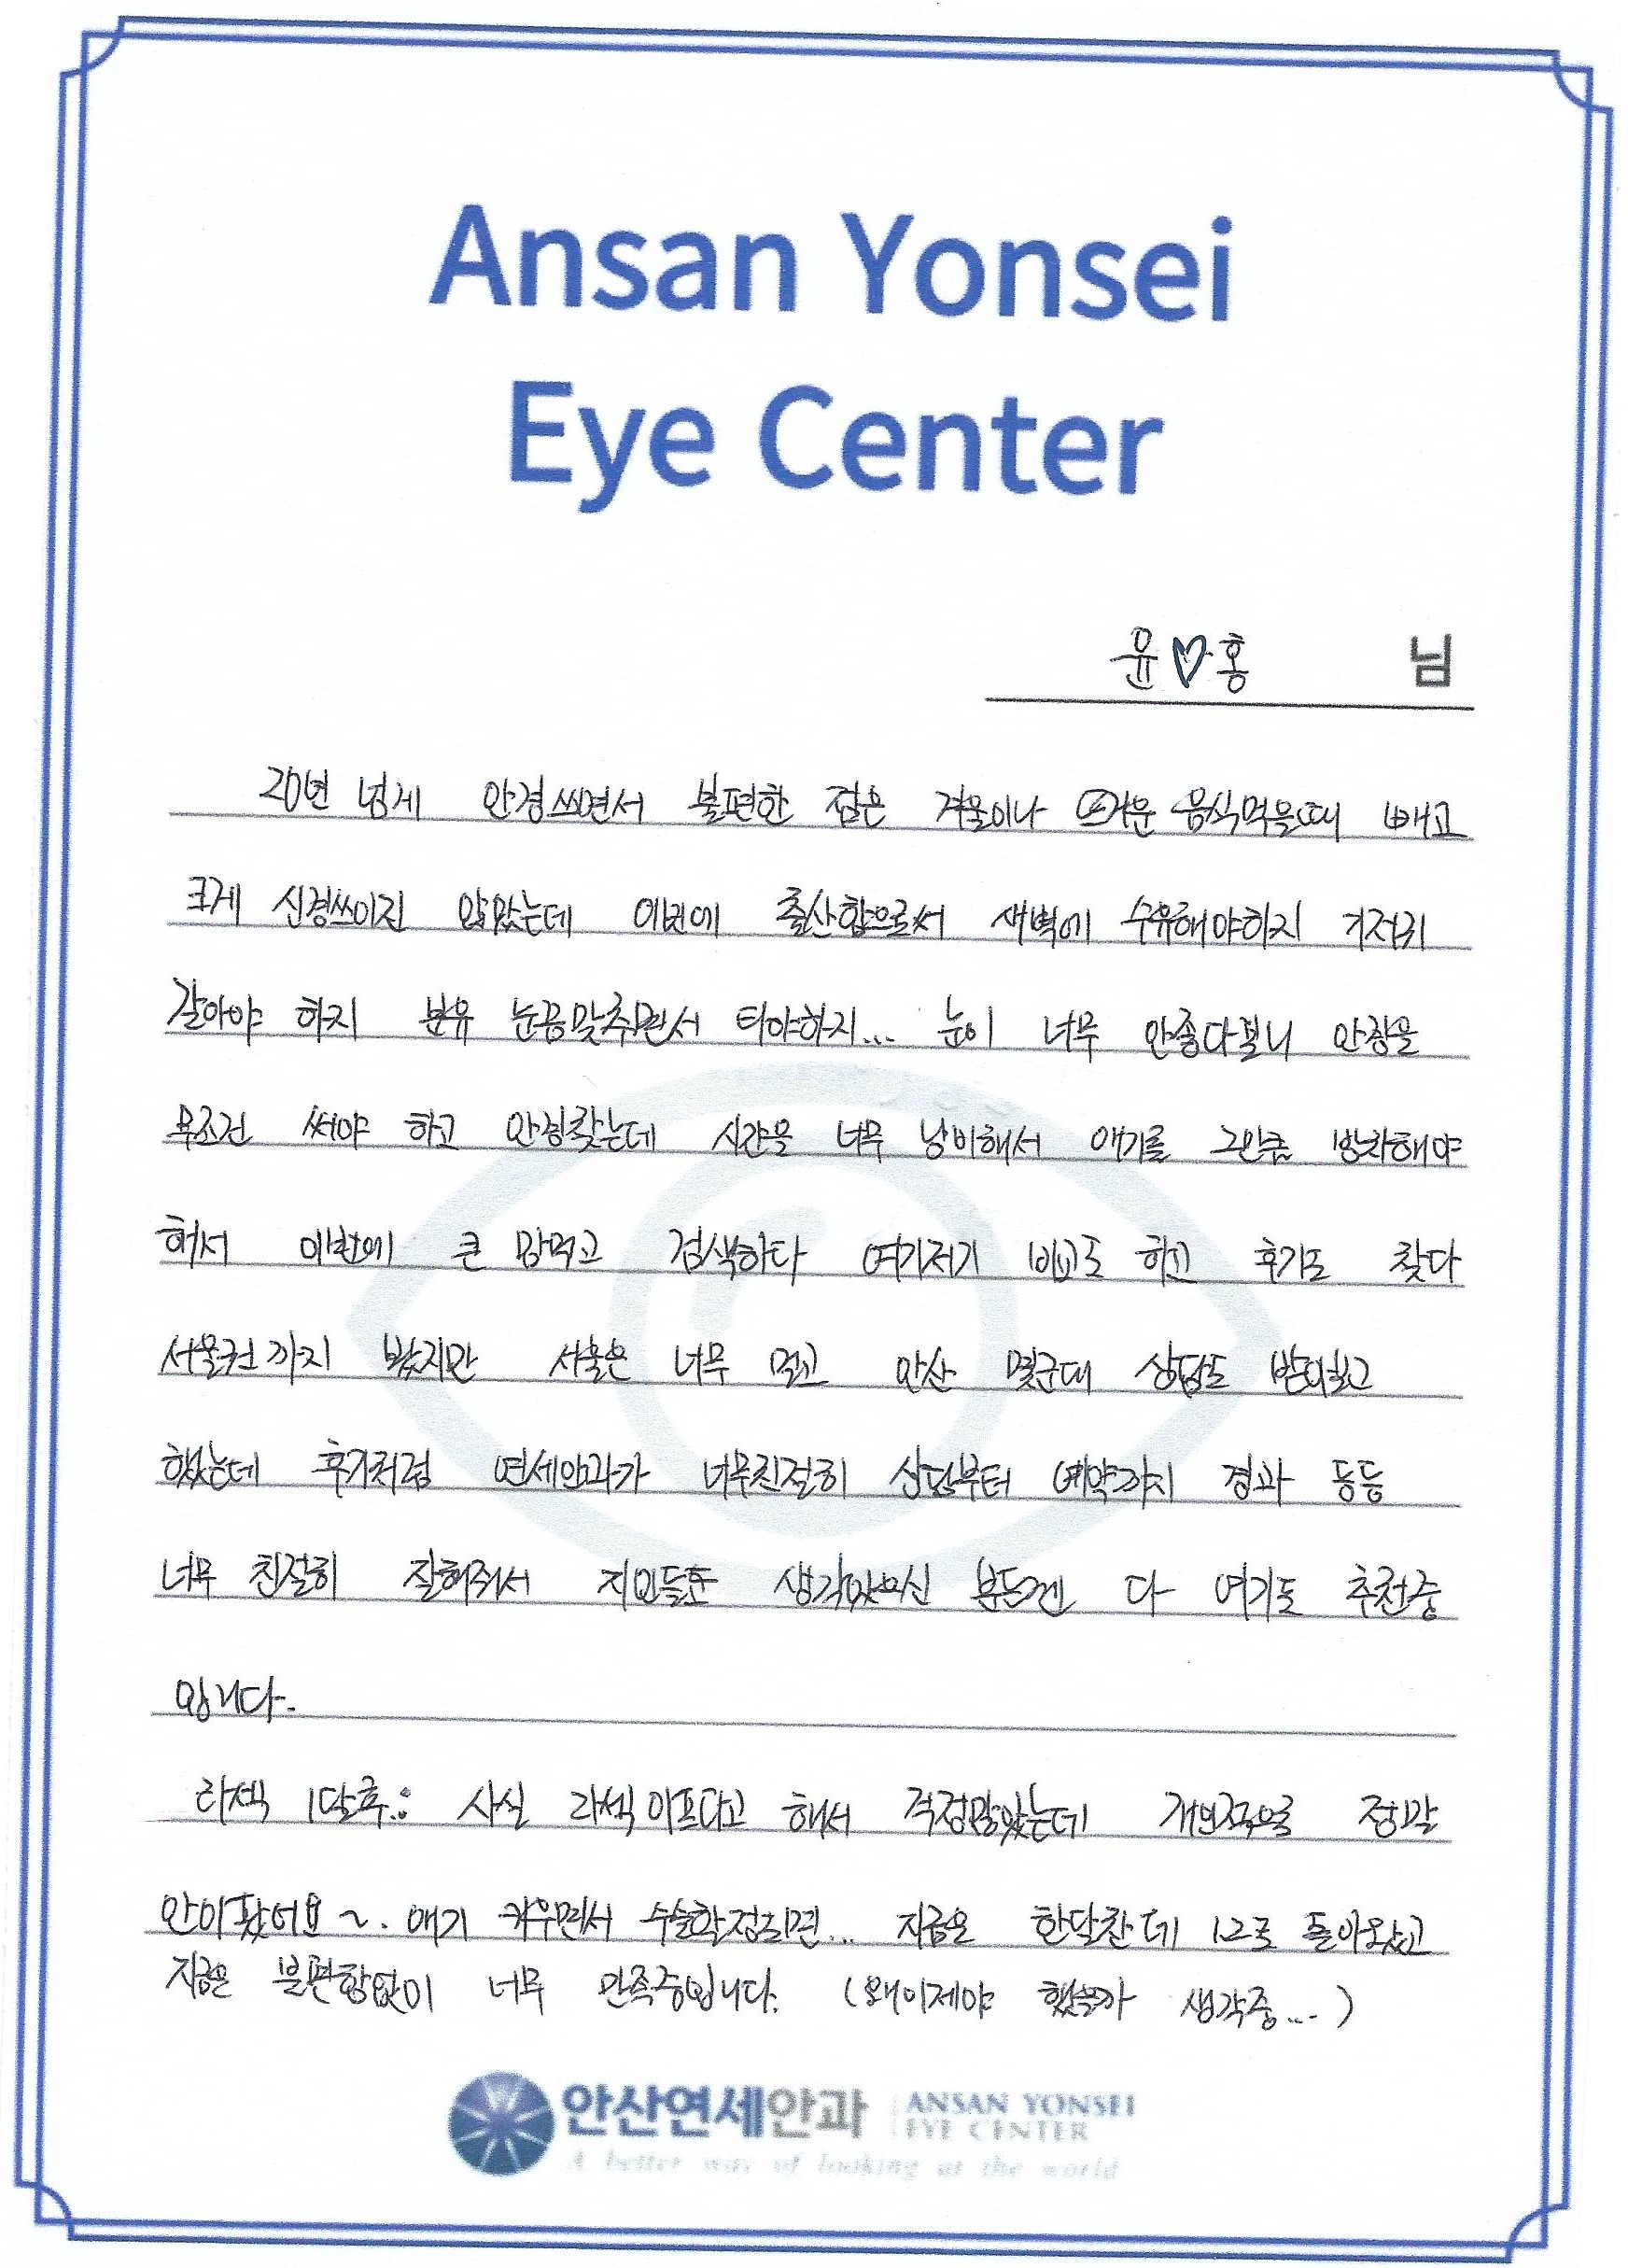 Ansan Yonsei
Eye Center
윤♡홍 님
20년 넘게 안경쓰면서 불편한 점은 겨울이나 뜨거운 음식먹을때 빼고
크게 신경쓰이진 않았는데 이번에 출산함으로써 새벽에 수유해야하지 기저귀
갈아야 하지 분유 눈금맞추면서 타야하지... 눈이 너무 안좋다보니 안경을
무조건 써야 하고 안경찾는데 시간을 너무 낭비해서 애기를 그만큼 방치해야
해서 이번에 큰 맘먹고 검색하다 여기저기 비교도 하고 후기도 찾다
서울권까지 봤지만 서울은 너무 멀고 안산 몇군데 상담도
했는데 후기처럼 연세안과가 너무친절히 상담부터 예약까지 경과 등등
너무 친절히 잘해줘서 지인들중 생각있으신 분들껜 다 여기로 추천중
입니다.
라섹 1달후.: 사실 라섹 아프다고 해서 걱정많았는데 개인적으로 정말
안아팠어요~. 애기 키우면서 수술확정되면... 지금은 한달찬데 1.2로 돌아왔고
지금은 불편함없이 너무 만족중입니다. (왜이제야 했을까 생각중...)
안산연세안과 ANSAN YONSEI
EYE CENTER
A better way of looking at the world